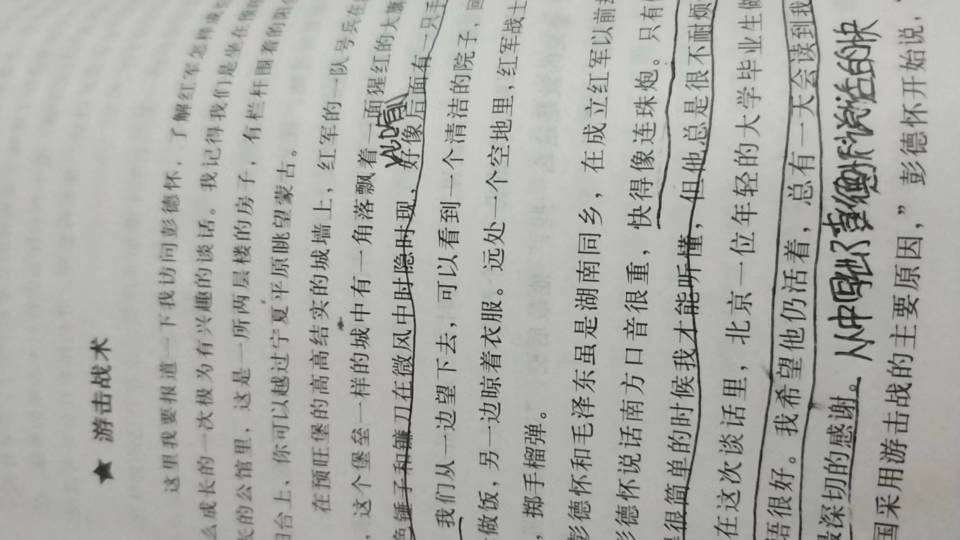 ★ 游击战术
这里我要报道一下我访问彭德怀，了解红军怎样
么成长的一次极为有兴趣的谈话。我记得我们是坐在
长的公馆里，这是一所两层楼的房子，有栏杆围着的阳
台上、你可以越过宁夏平原眺望蒙古。
在预旺堡的高高结实的城墙上，红军的一队号兵在
，这个堡垒一样的城中有一角落飘着一面猩红的大旗
色锤子和镰刀在微风中时隐时现，好像后面有一只手
我们从一边望下去，可以看到一个清洁的院子，
做饭，另一边晾着衣服。远处一个空地里，红军战士
，掷手榴弹。
彭德怀和毛泽东虽是湖南同乡，在成立红军以前
彭德怀说话南方口音很重，快得像连珠炮。只有
是很简单的时候我才能听懂，但他总是很不耐烦
在这次谈话里，北京一位年轻的大学毕业生做
语很好。我希望他仍活着，总有一天会读到我
最深切的感谢。从中
国采用游击战的主要原因，”彭德怀开始说，